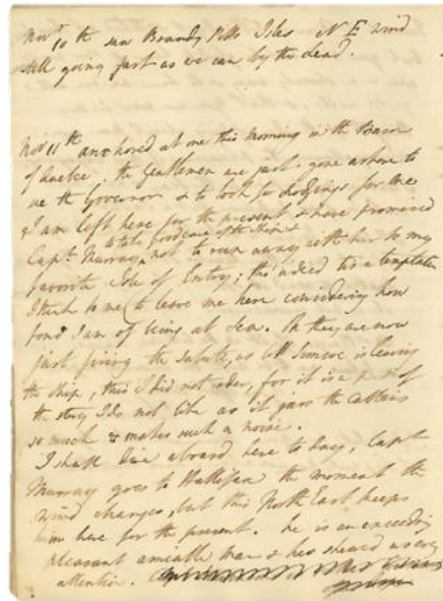 Novr 10th saw Brandy Potts Isles N E wind
still going fast as we can by the Lead.
Nov 11th anchored at one this Morning in the Bason
of Quebec. the Gentlemen are just gone ashore to
see the Governor & to look for Lodgings for me
& I am left here for the present & have promised
to take good care of the Ship &
Capt. Murray not to run away with her to my
favorite Isle of Entry; tho' indeed tis a temptation
I think to me to leave me here considering how
fond I am of being at Sea. Oh they are now
just firing the Salute, as Coll Simcoe is leaving
the Ship, this I did not order, for it is a of
the story I do not like as it jars the Cabbins
so much & makes such a noise.
I shall dine aboard here to day, Capt
Murray goes to Hallifax the moment the
wind changes, but this North East keeps
him here for the present. he is an exceeding
pleasant amiable Man & has shewed us every
attention.